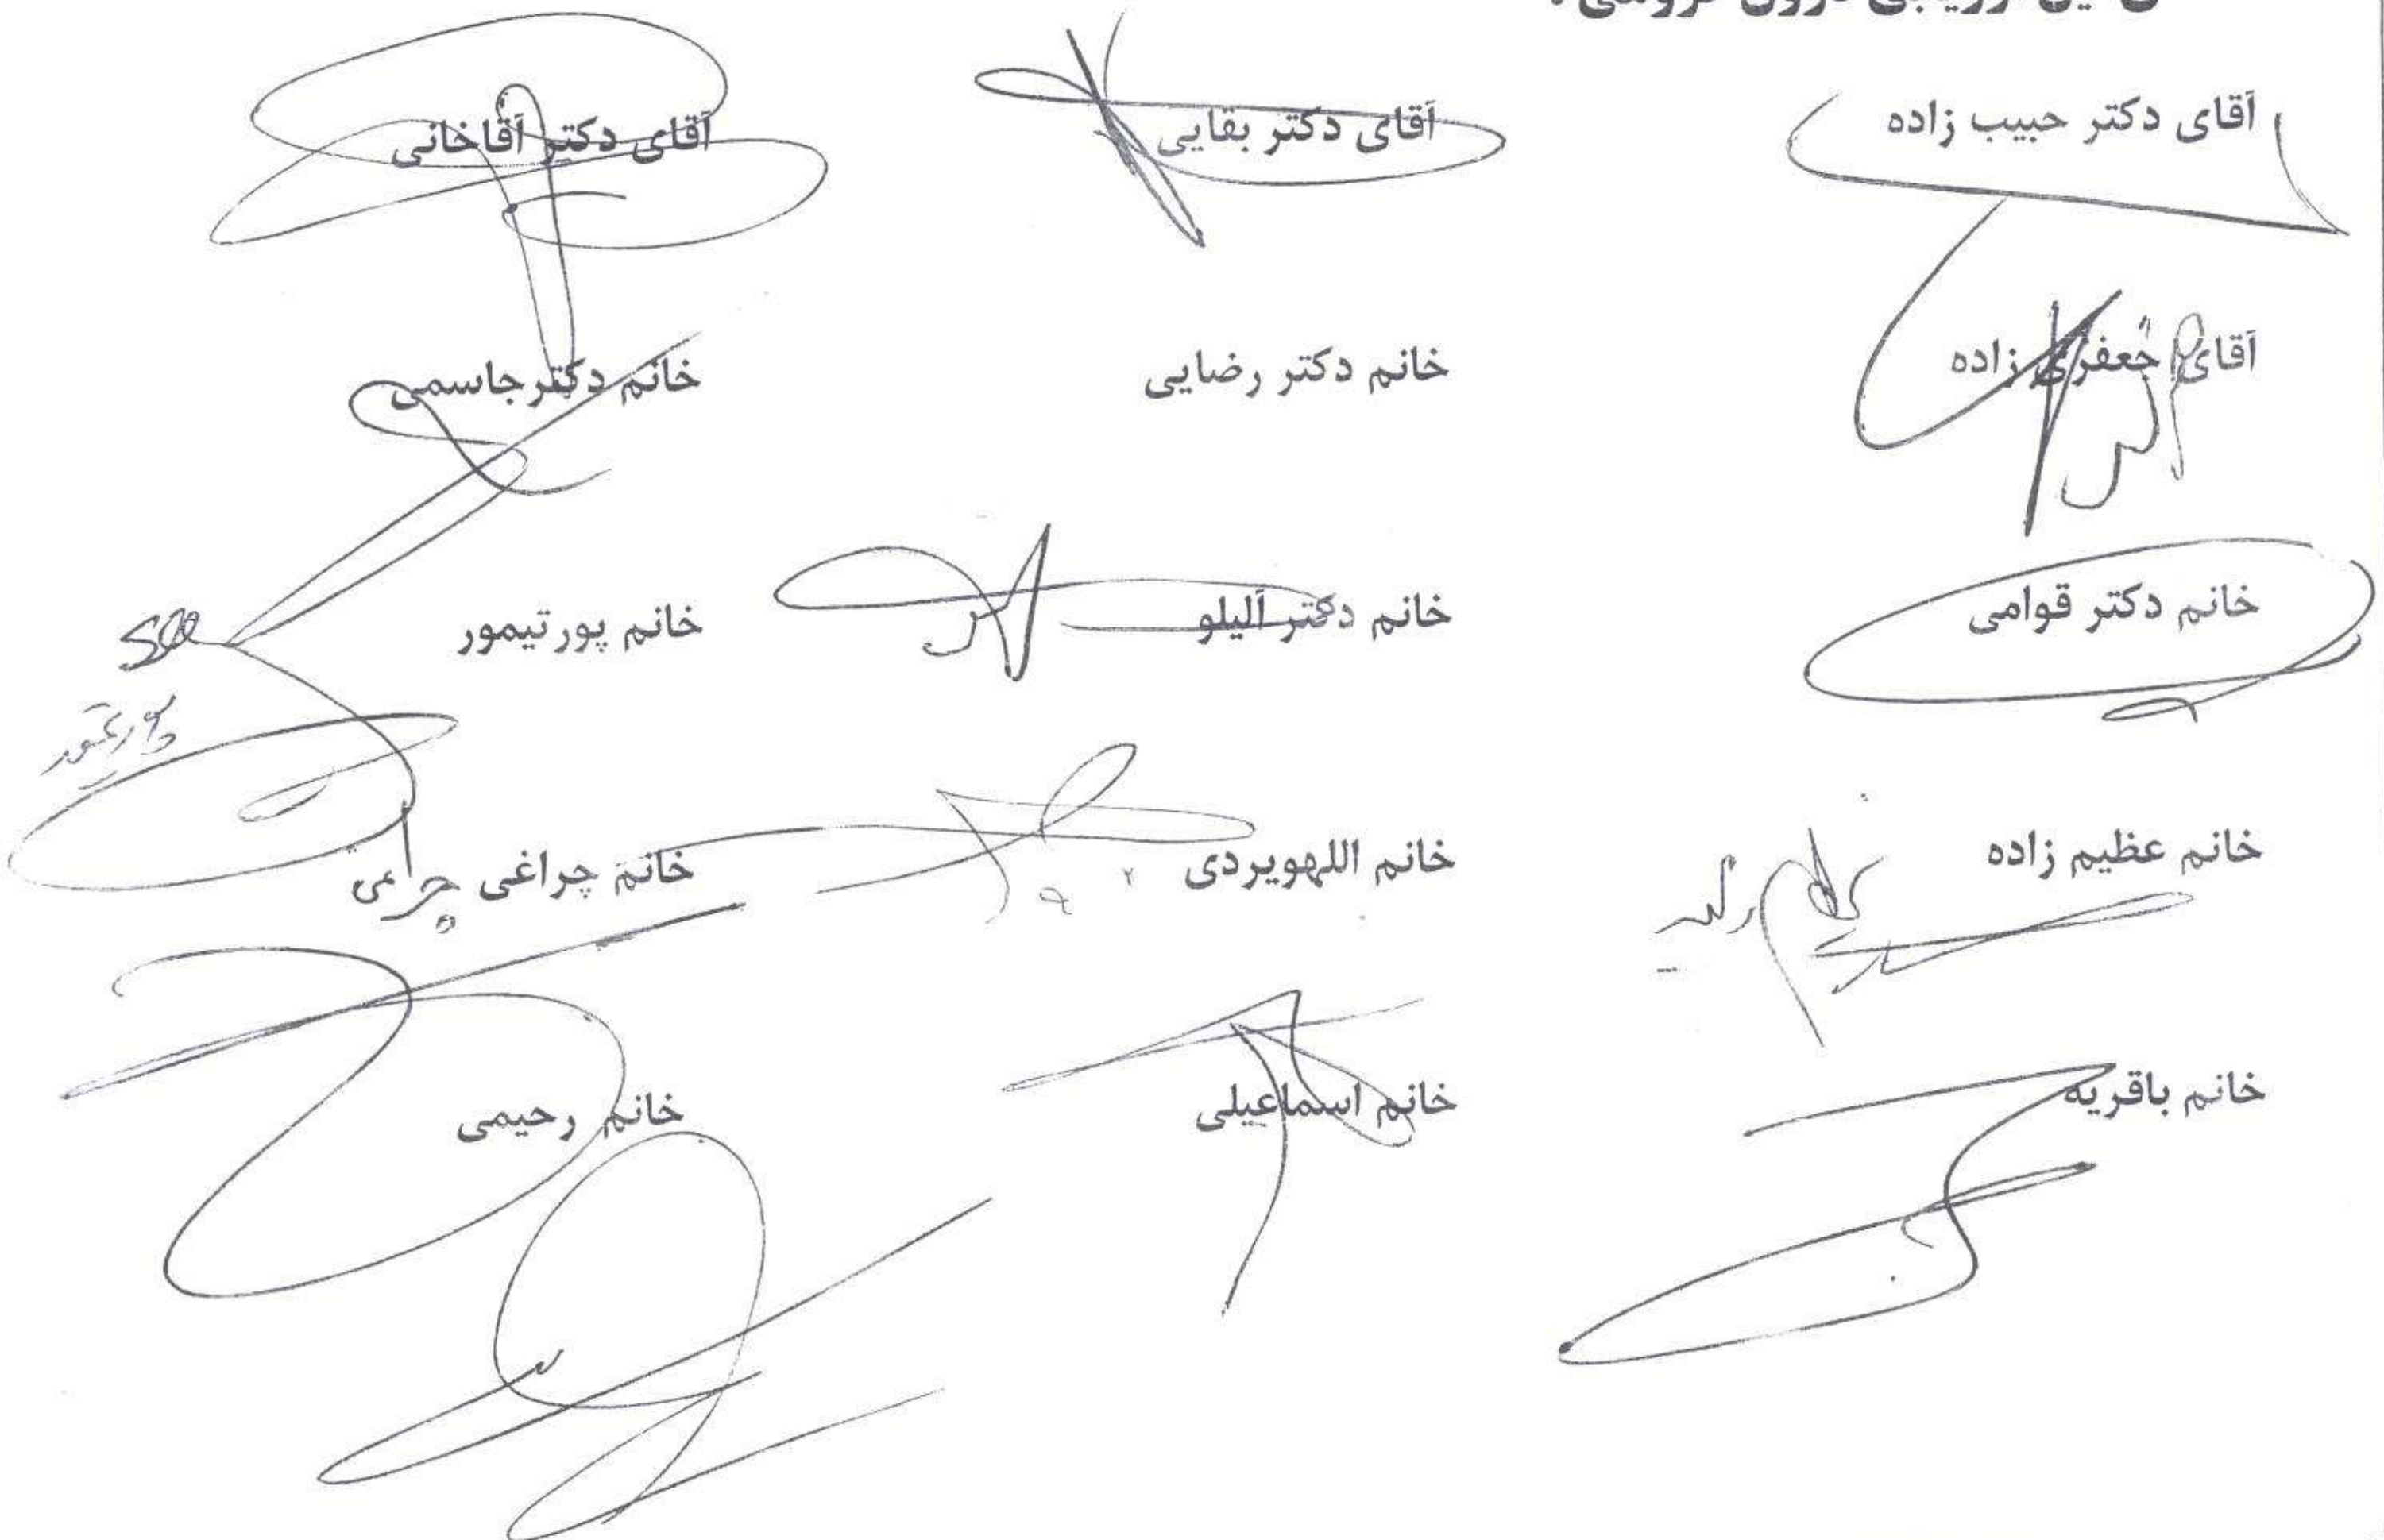 آقای دکتر حبیب زاده آقای دکتر بقایی آقای دکتر آقاخانی
آقای جعفری زاده خانم دکتر رضایی خانم دکتر جاسمی
خانم دکتر قوامی خانم دکتر آلیلو خانم پور تیمور
خانم عظیم زاده خانم اللهویردی خانم چراغی
خانم باقریه خانم اسماعیلی خانم رحیمی